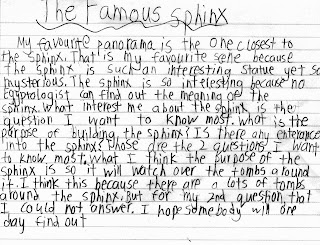 The Famous sphinx
My favourite panorama is the one closest to
the sphinx. That is my favourite scene because
the sphinx is such an interesting statue yet so
mysterious. The sphinx is so interesting because no
egyptologist can find out the meaning of the
sphinx. What interest me about the sphinx is the
question I want to know most. What is the
purpose of building the sphinx? Is there any enterance
into the sphinx? Those are the 2 questions I want
to know most. What I think the purpose of the
sphinx is so it will watch over the tombs around
it. I think this because there are a lots of tombs
around the sphinx. But for my 2nd question that
I could not answer. I hope somebody will one
day find out